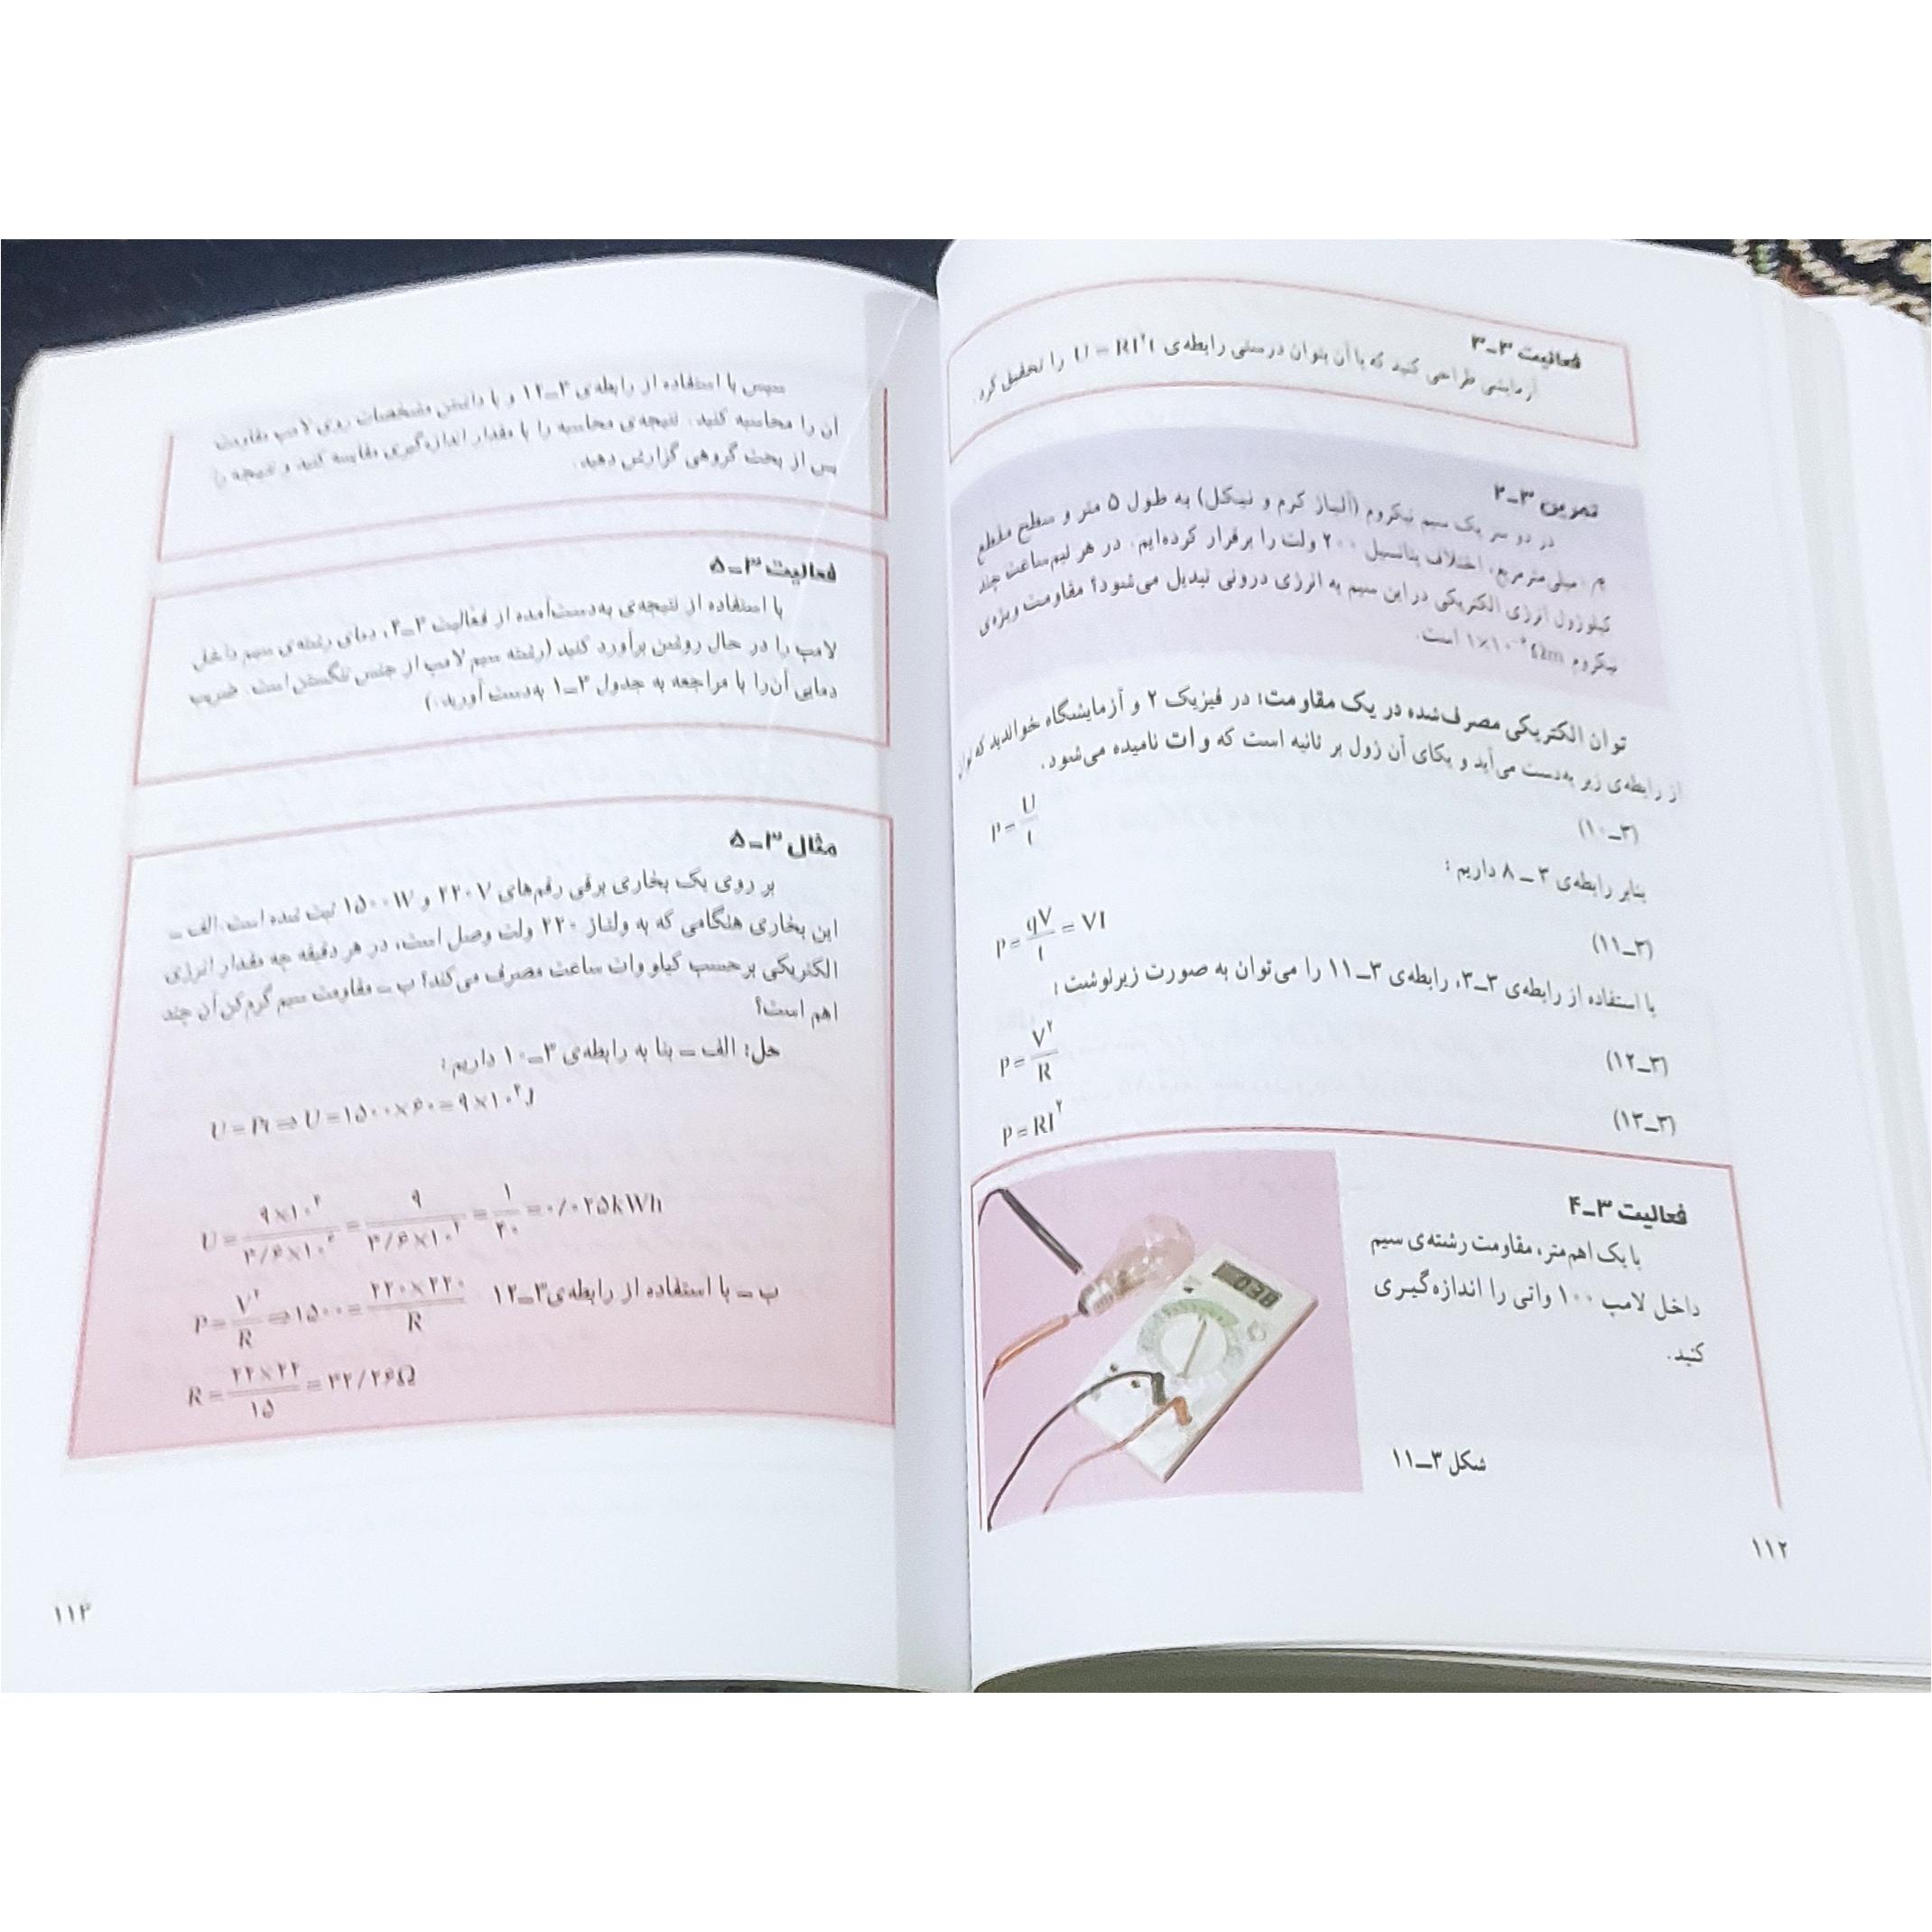 فعالیت ۳ــ۳
آزمایشی طراحی کنید که با آن بتوان درستی رابطه‌ی U = RI²t را تحقیق کرد.
تمرین ۳ــ۲
در دو سر یک سیم نیکروم (آلیاژ کرم و نیکل) به طول ۵ متر و سطح مقطع
میلی‌مترمربع، اختلاف پتانسیل ۲۰۰ ولت را برقرار کرده‌ایم. در هر نیم‌ساعت چند
کیلوژول انرژی الکتریکی در این سیم به انرژی درونی تبدیل می‌شود؟ مقاومت ویژه‌ی
نیکروم است.
توان الکتریکی مصرف‌شده در یک مقاومت: در فیزیک ۲ و آزمایشگاه خواندید که توان
از رابطه‌ی زیر به‌دست می‌آید و یکای آن ژول بر ثانیه است که وات نامیده می‌شود.
(۳ــ۱۰) P = U/t
بنابر رابطه‌ی ۳ ــ ۸ داریم :
(۳ــ۱۱) P = qV/t = VI
با استفاده از رابطه‌ی ۳ــ۳، رابطه‌ی ۳ــ۱۱ را می‌توان به صورت زیر نوشت :
(۳ــ۱۲) P = V²/R
(۳ــ۱۳) P = RI²
فعالیت ۳ــ۴
با یک اهم‌متر، مقاومت رشته‌ی سیم
داخل لامپ ۱۰۰ واتی را اندازه‌گیری
کنید.
شکل ۳ــ۱۱
۱۱۲
سپس با استفاده از رابطه‌ی ۳ــ۱۲ و با داشتن مشخصات روی لامپ مقاومت
آن را محاسبه کنید. نتیجه‌ی محاسبه را با مقدار اندازه‌گیری مقایسه کنید و نتیجه را
پس از بحث گروهی گزارش دهید.
فعالیت ۳ــ۵
با استفاده از نتیجه‌ی به‌دست‌آمده از فعالیت ۳ــ۴، دمای رشته‌ی سیم داخل
لامپ را در حال روشن برآورد کنید (رشته سیم لامپ از جنس تنگستن است. ضریب
دمایی آن‌را با مراجعه به جدول ۳ــ۱ به‌دست آورید.)
مثال ۳ــ۵
بر روی یک بخاری برقی رقم‌های ۲۲۰V و ۱۵۰۰W ثبت شده است. الف ــ
این بخاری هنگامی که به ولتاژ ۲۲۰ ولت وصل است، در هر دقیقه چه مقدار انرژی
الکتریکی برحسب کیلو وات ساعت مصرف می‌کند؟ ب ــ مقاومت سیم گرم‌کن آن چند
اهم است؟
حل: الف ــ بنا به رابطه‌ی ۳ــ۱۰ داریم:
U = Pt ⇒ U = ۱۵۰۰×۶۰ = ۹×۱۰⁴J
U = ۹×۱۰⁴/۳/۶×۱۰⁶ = ۹/۳/۶×۱۰² = ۱/۴۰ = ۰/۰۲۵kWh
ب ــ با استفاده از رابطه‌ی ۳ــ۱۲ P = V²/R ⇒ ۱۵۰۰ = ۲۲۰×۲۲۰/R
R = ۲۲×۲۲/۱۵ = ۳۲/۲۶Ω
۱۱۳